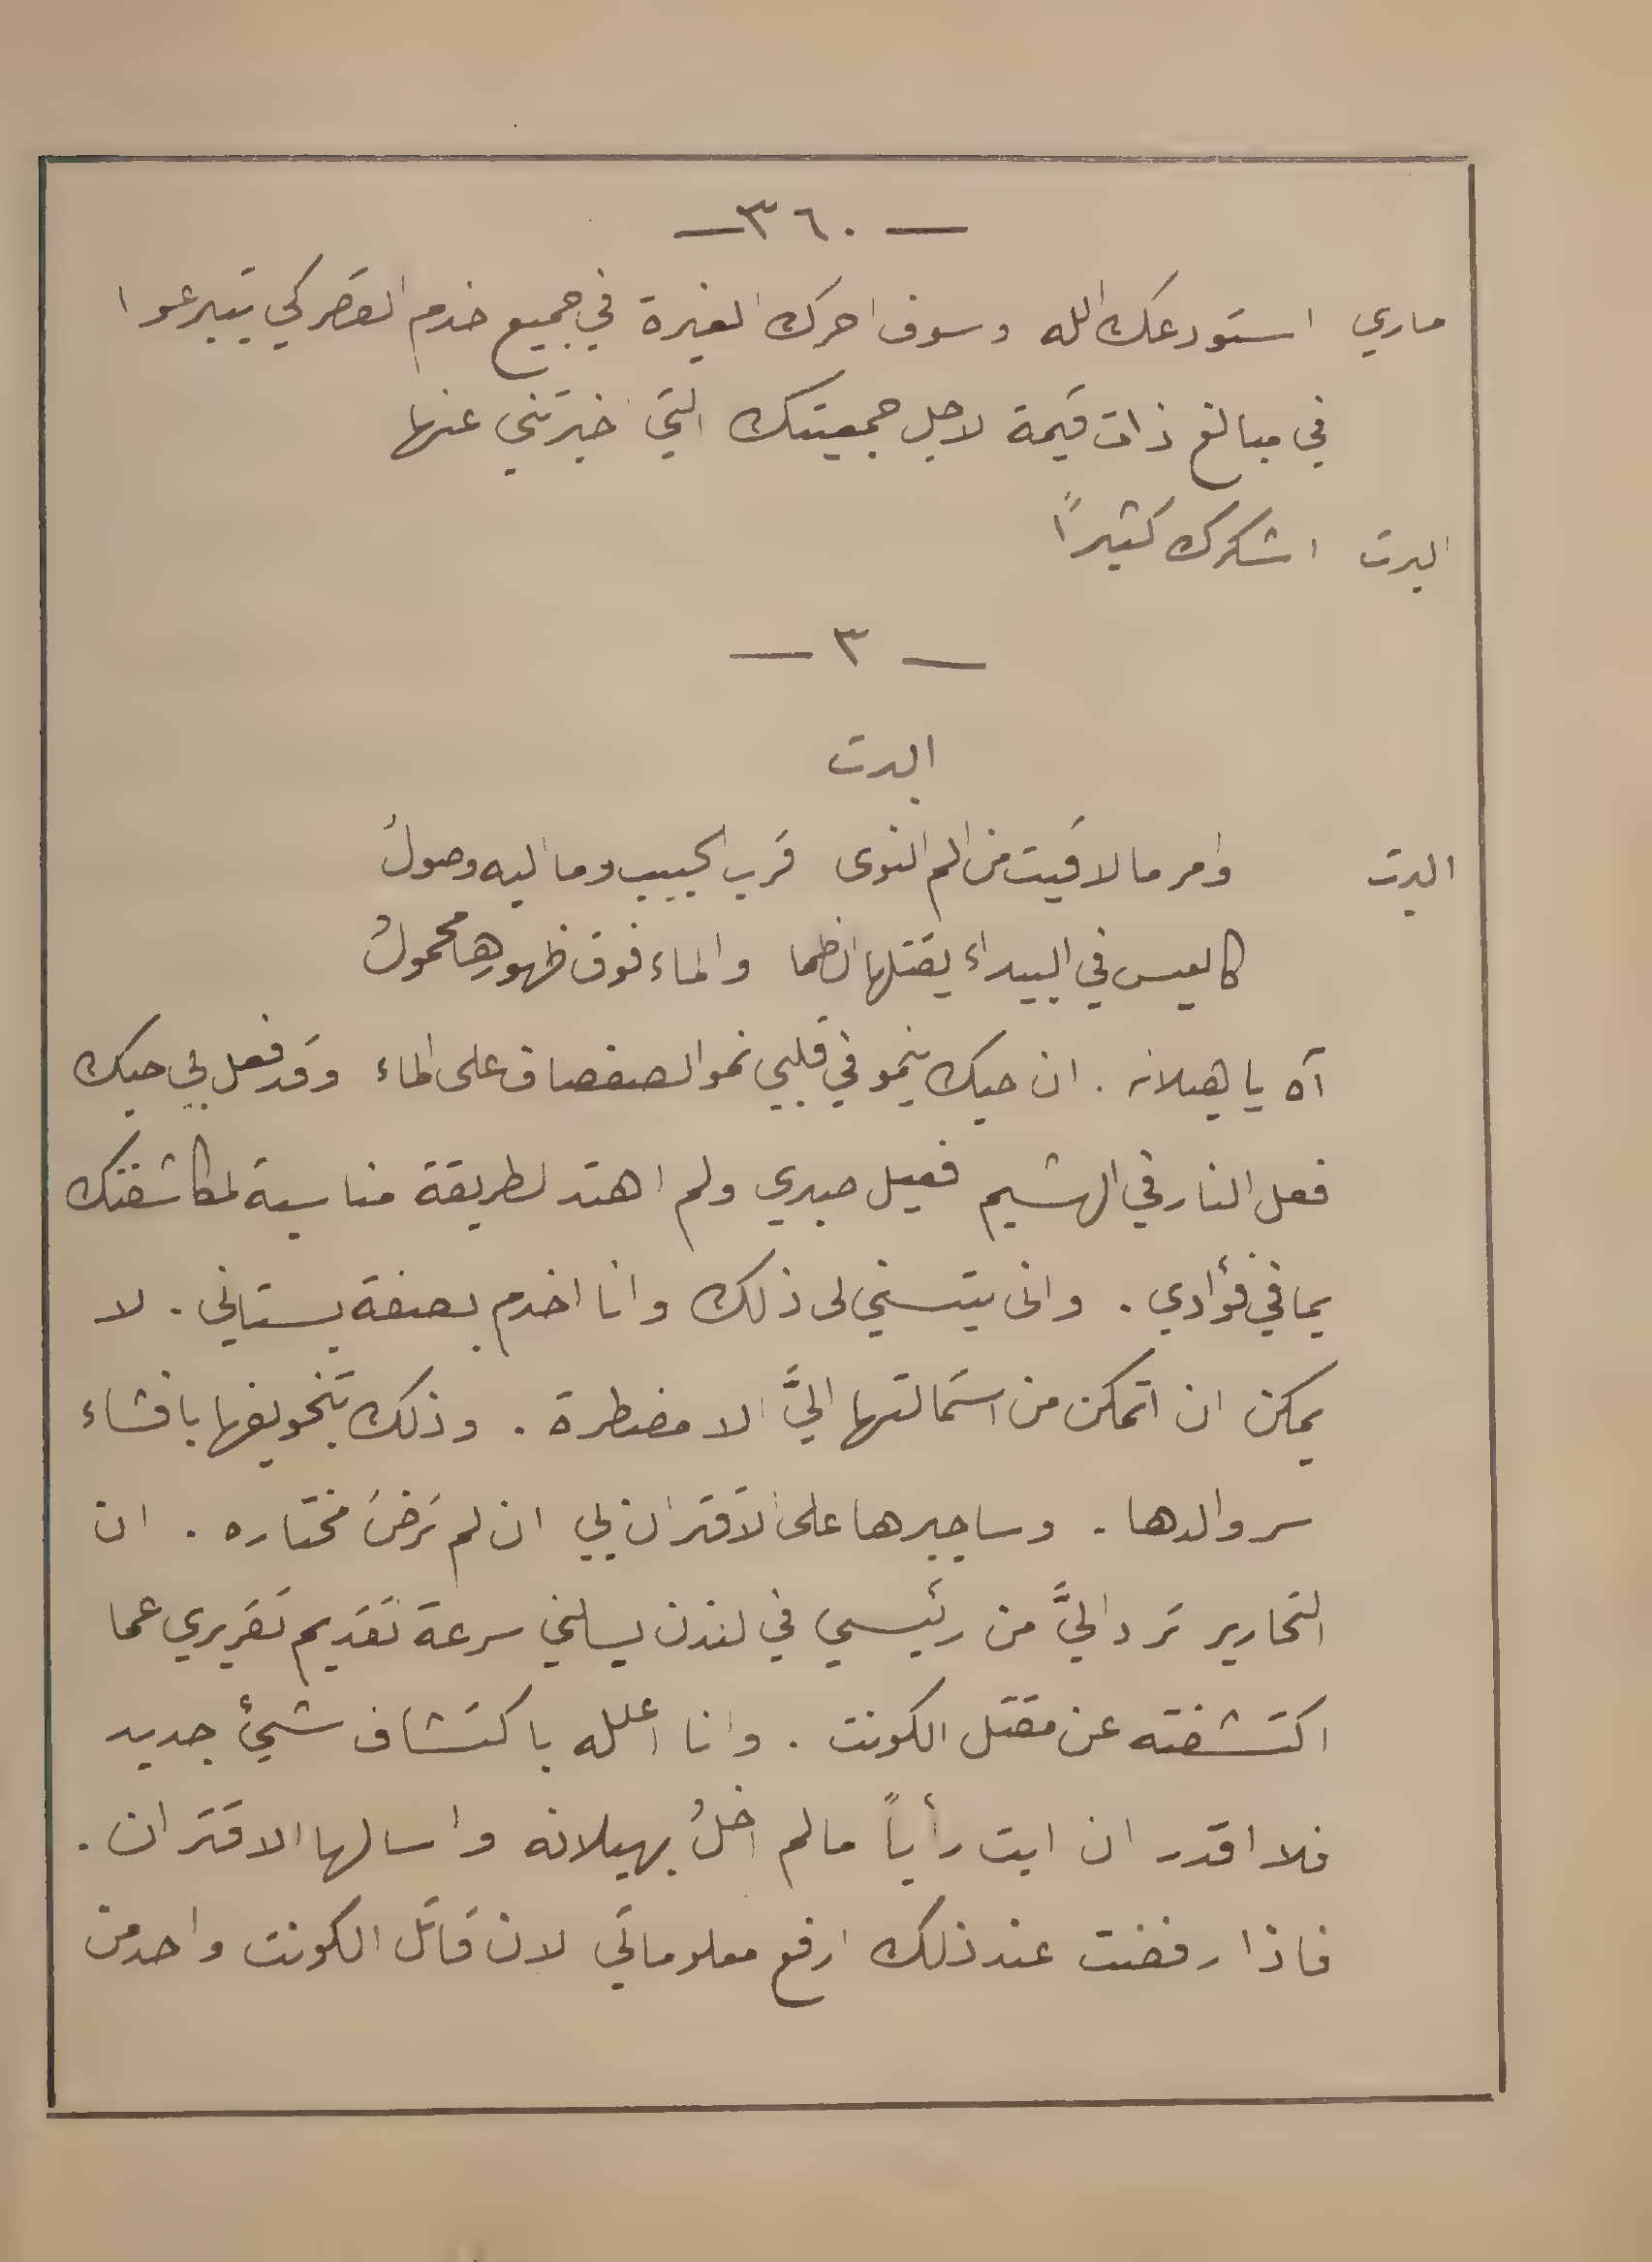 — ٣٦٠ —
ماري استودعك الله وسوف احرك الغيرة في جميع خدم القصر كي يتبرعوا
في مبالغ ذات قيمة لاجل جمعيتك التي خبرتني عنها
البرت اشكرك كثيراً
— ٣ —
البرت
البرت وامر ما لاقيت من الم النوى قرب الحبيب وما اليه وصولُ
كالعيس في البيداء يقتلها الظما والماء فوق ظهورها محمولُ
آه يا هيلانه . ان حبك ينمو في قلبي نمو الصفصاف على الماء وقد فعل بي حبك
فعل النار في الهشيم فعيل صبري ولم اهتد لطريقة مناسبة لمكاشفتك
بما في فؤادي . وانى يتسنى لى ذلك وانا اخدم بصفة بستاني . لا
يمكن ان اتمكن من استمالتها اليَّ الا مضطرة . وذلك بتخويفها بافشاء
سر والدها . وساجبرها على الاقتران بي ان لم ترضَ مختاره . ان
التحارير ترد اليَّ من رئيسي في لندن يسالني سرعة تقديم تقريري عما
اكتشفته عن مقتل الكونت . وانا اعلله باكتشاف شيئ جديد
فلا اقدر ان ابت رأياً مالم اخلُ بهيلانه واسالها الاقتران .
فاذا رفضت عند ذلك ارفع معلوماتي لان قاتل الكونت واحد من